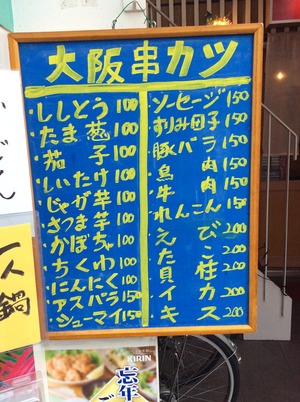 大阪串カツ
・ししとう 100
・たま葱 100
・茄子 100
・しいたけ 100
・じゃが芋 100
・さつま芋 100
・かぼちゃ 100
・ちくわ 100
・にんにく 100
・アスパラ 150
・シューマイ 150
・ソーセージ 150
・すりみ団子 150
・豚バラ 150
・鳥肉 150
・牛肉 150
・れんこん 150
・えび
・たこ 200
・貝柱 200
・イカ 200
・キス 200
一人鍋
KIRIN
忘年